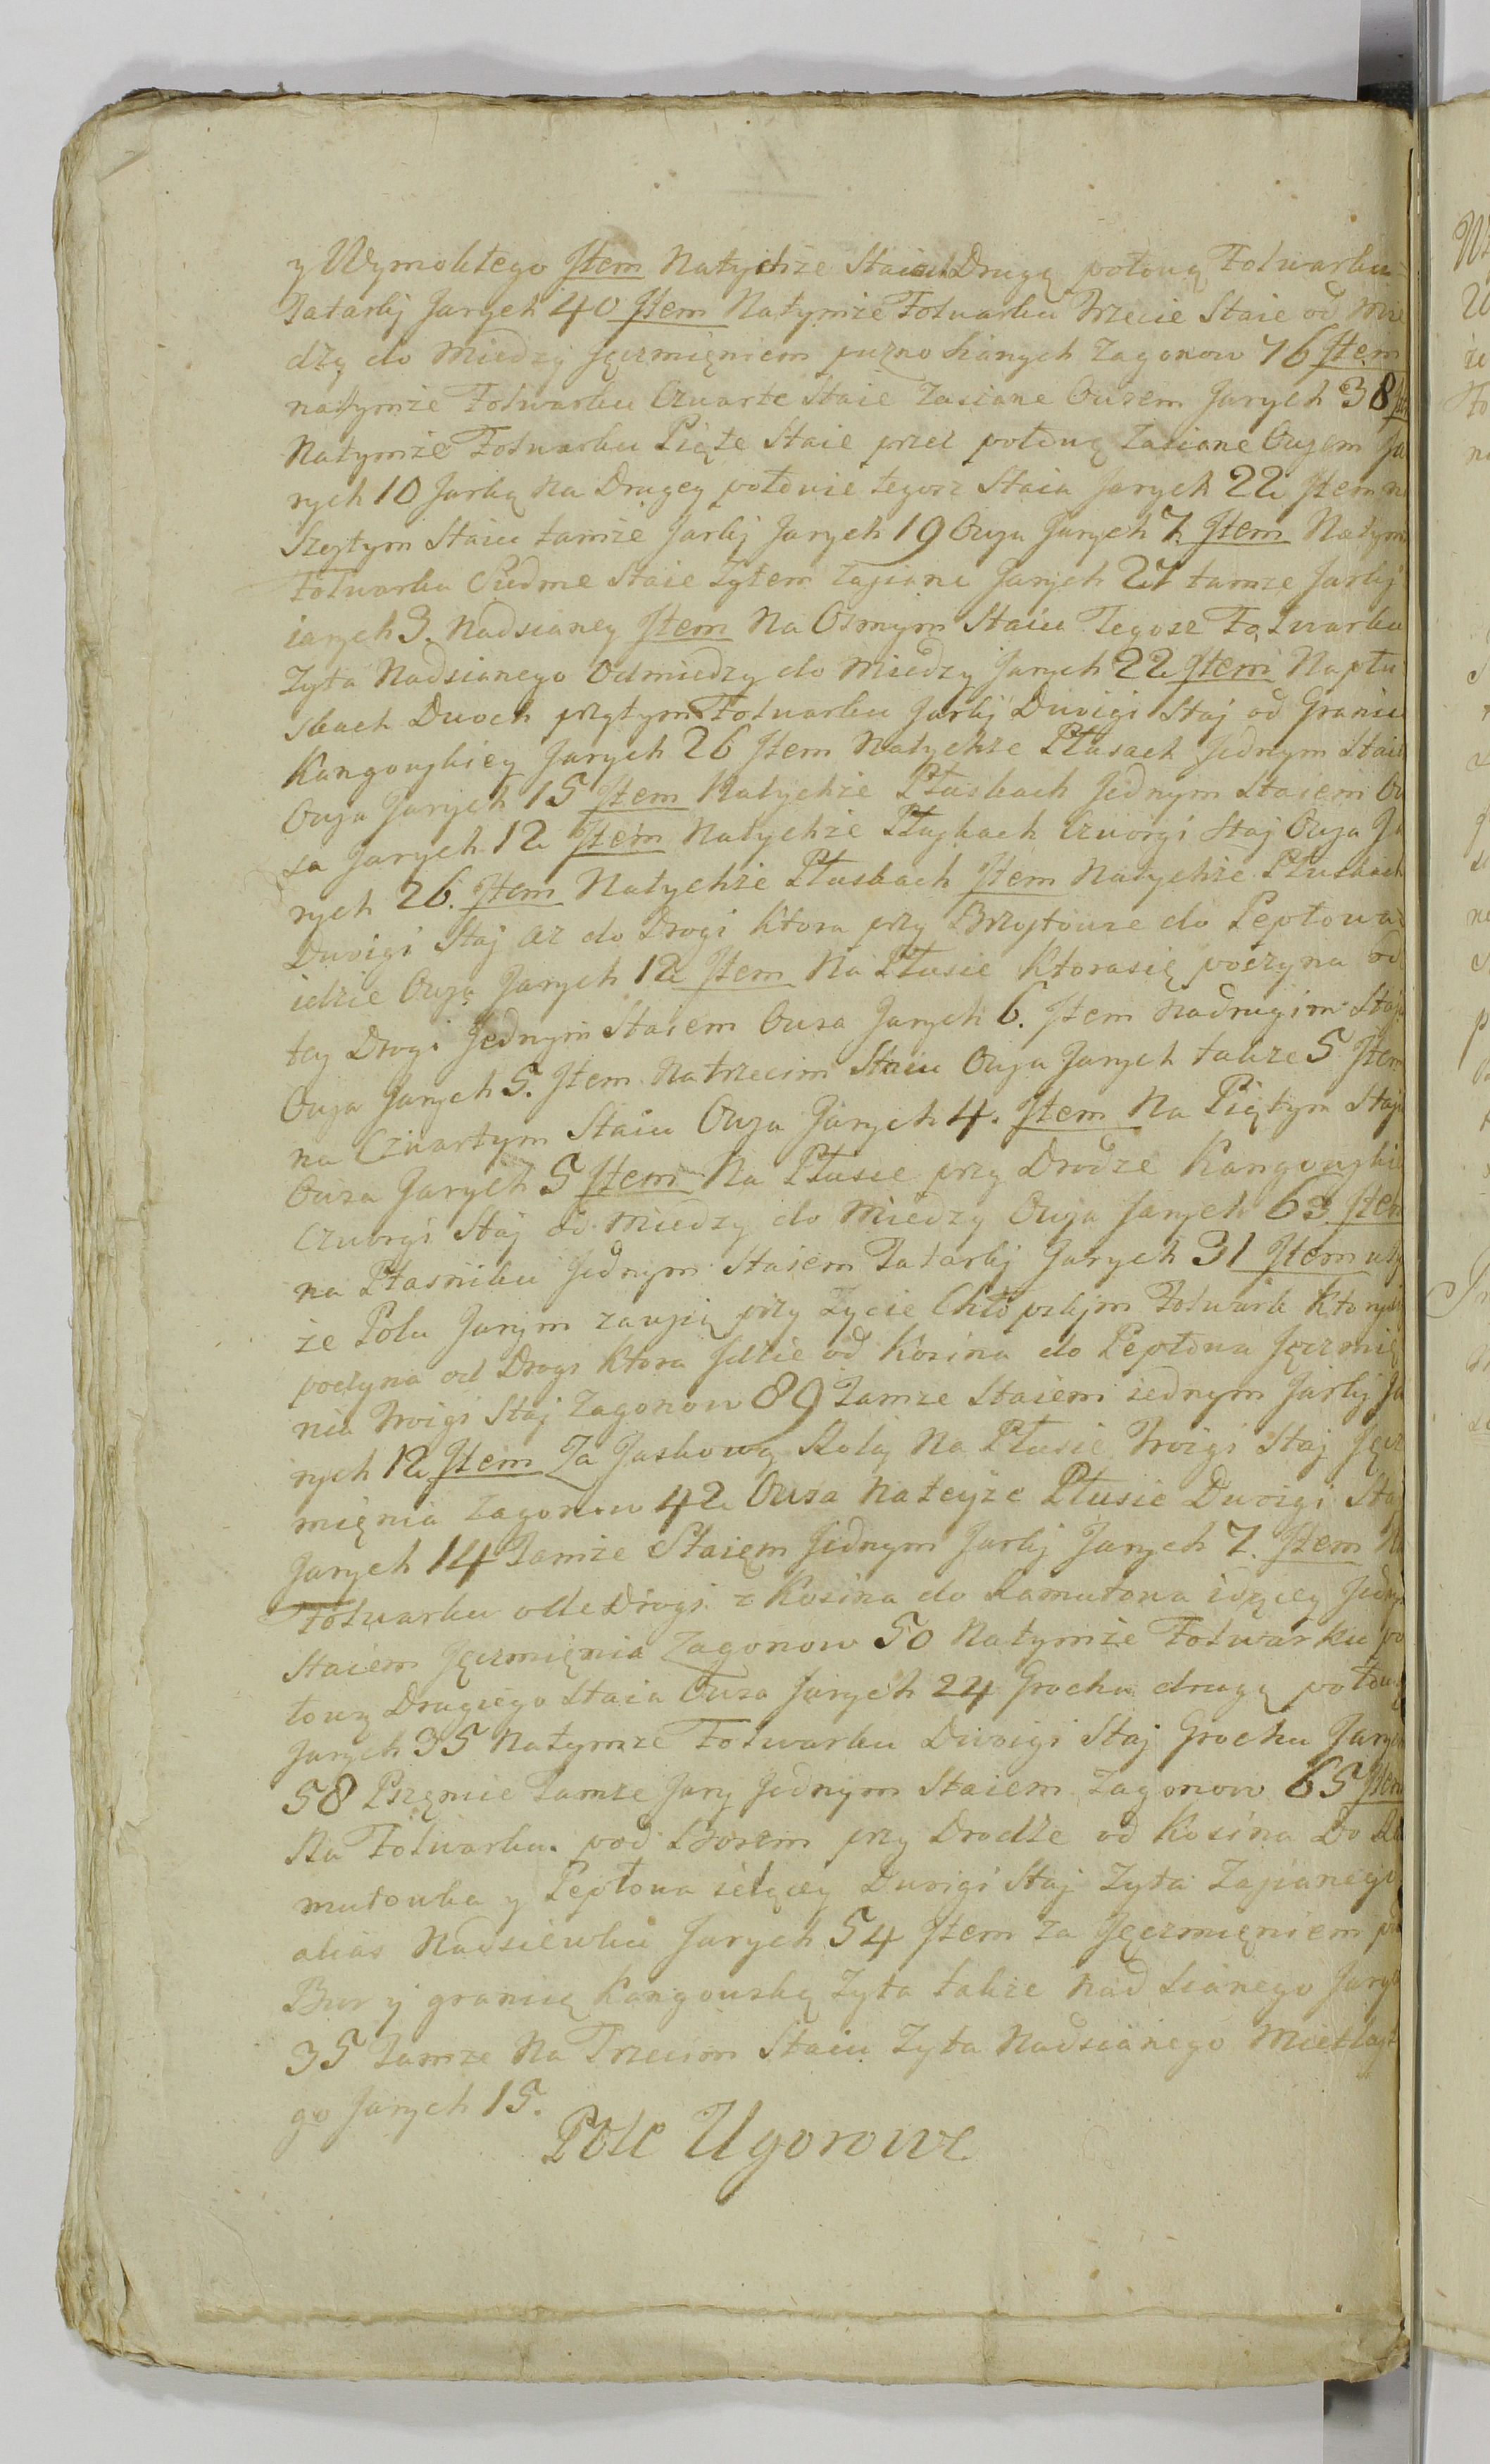 y Wymokłego Item Natychże Staiach Drugą połowę Folwarku
Tatarki Jarych 40 Item Natymże Folwarku Trzecie Staie od Mie
dzy do Miedzy Jęczmięniem puzno sianych Zagonow 76 Item
natymże Folwarku Czwarte Staie Zasiane Owsem Jarych 38
Natymże Folwarku Piąte Staie przez połowę Zasiane Owsem Ja
rych 10 Jarką Na Drugey połowie tegosz Staia Jarych 22 Item na
Szostym Staiu tamże Jarki Jarych 19 Owsa Jarych 7. Item Natym
Folwarku Siudme Staie Zytem Zasiane Jarych 27 tamze Jarki
iarych 3. Nadsianey Item Na Osmym Staiu Tegosz Folwarku
Zyta Nadsianego Odmiedzy do Miedzy Jarych 22 Item Na płu
skach Dwoch przytym Folwarku Jarki Dwoigi Staj od Granicy
Kangowskiey Jarych 26 Item Natychże Płusach Jednym Staiu
Owsa Jarych 15 Item Natychże Płuskach Jednym Staiem Ow
sa Jarych 12 Item Natychże Płuskach Czworgi Staj Owsa Ja
rych 26. Item Natychże Płuskach Item Natychże Płuskach
Dwoigi Staj az do Drogi Ktora przy Brzostowze do Pepłowa
idzie Owsa Jarych 12 Item Na Płusie Ktorasię poczyna od
tey Drogi Jednym Staiem Owsa Jarych 6. Item Nadrugim Staju
Owsa Jarych 5. Item Natrzecim Staiu Owsa Jarych takze 5 Item
na Czwartym Staiu Owsa Jarych 4. Item Na Piętym Staju
Owsa Jarych 5 Item Na Płusie przy Drodze Kangowskiey
Czworgi Staj od Miedzy do Miedzy Owsa Jarych 63 Item
na Płasniku Jednym Staiem Tatarki Jarych 31 Item wty
że Polu Jarym zawsią przy Zycie Chłopskjm Folwark Ktorysię
poczyna od Drogi Ktora Jdzie od Kosina do Pepłowa Jęczmię
nia Troigi Staj Zagonow 89 Tamze Staiem iednym Jarki Ja
rych 12 Item Za Jaskową Rolą Na Płusie Troigi Staj Jęcz
mięnia Zagonow 42 Owsa Nateyże Płusie Dwoigi Staj
Jarych 14 Tamże Staięm Jednym Jarki Jarych 7. Item Na
Folwarku odedrogi z Kosina do Ramutowa idącey Jednym
Staiem Jęczmięnia Zagonow 50 Natymże Folwarku po
łowę Drugiego Staia Owsa Jarych 24 Grochu drugą połowę
Jarych 35 Natymże Folwarku Dwoigi Staj Grochu Jarych
58 Przęnic Tamze Jary Jednym Staiem Zagonow 65 Item
Na Folwarku pod Borem przy Drodze od Kosina Do Ra
mutowka y Pepłowa idącey Dwoigi Staj Zyta Zasianego
alias Nadsiewku Jarych 54 Item za Jęczmięniem pod
Bur y granicę Kangowską Zyta takze nadsianego Jarych
35 Tamze Na Trzecim Staiu Zyta Nadsianego Mietlaste
go Jarych 15.
Pole Ugorowe